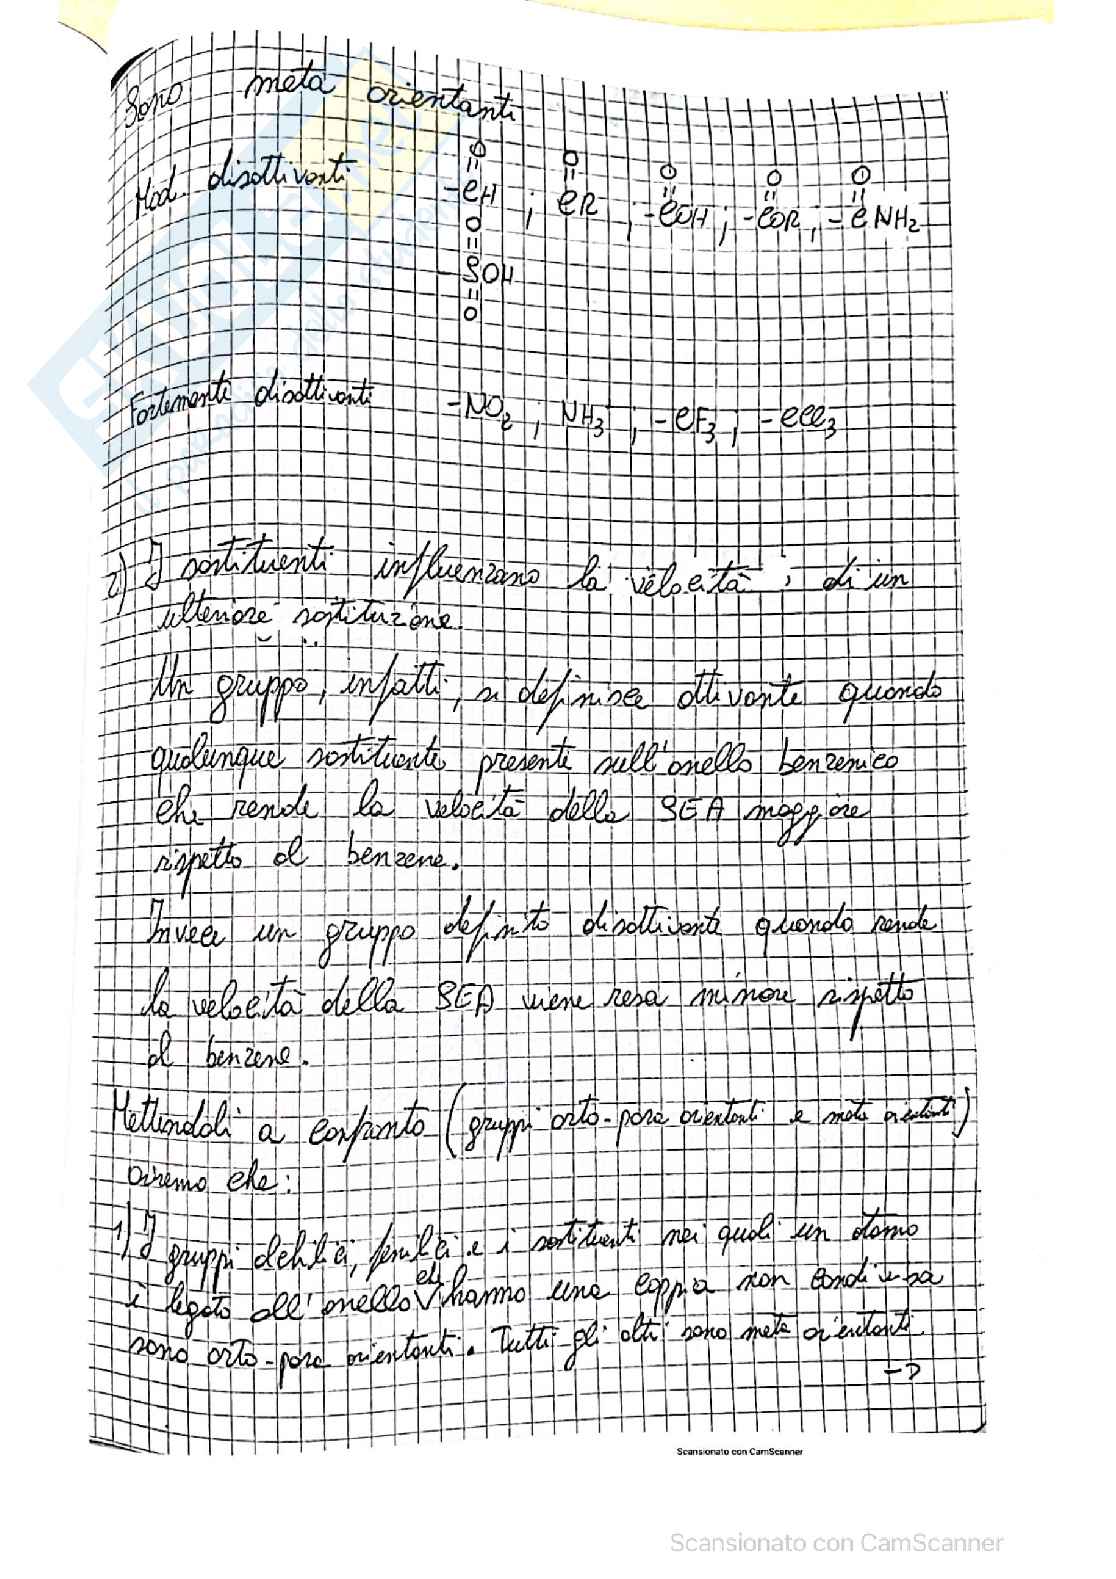 Sono meta orientanti
O O O O O
Mod. disattivanti -CH ; CR ; -COH ; -COR ; -CNH2
O
-SOH
O
Fortemente disattivanti -NO2 ; NH3 ; -CF3 ; -CCl3
2) I sostituenti influenzano la velocità di un
ulteriore sostituzione.
Un gruppo, infatti, si definisce attivante quando
qualunque sostituente presente sull'anello benzenico
che rende la velocità della SEA maggiore
rispetto al benzene.
Invece un gruppo definito disattivante quando rende
la velocità della SEA viene resa minore rispetto
al benzene.
Mettendoli a confronto (gruppi orto-para orientanti e meta orientanti)
avremo che:
1) I gruppi alchilici, fenilici e i sostituenti nei quali un atomo
è legato all'anello che hanno una coppia non condivisa
sono orto-para orientanti. Tutti gli altri sono meta orientanti.
->
Scansionato con CamScanner
Scansionato con CamScanner